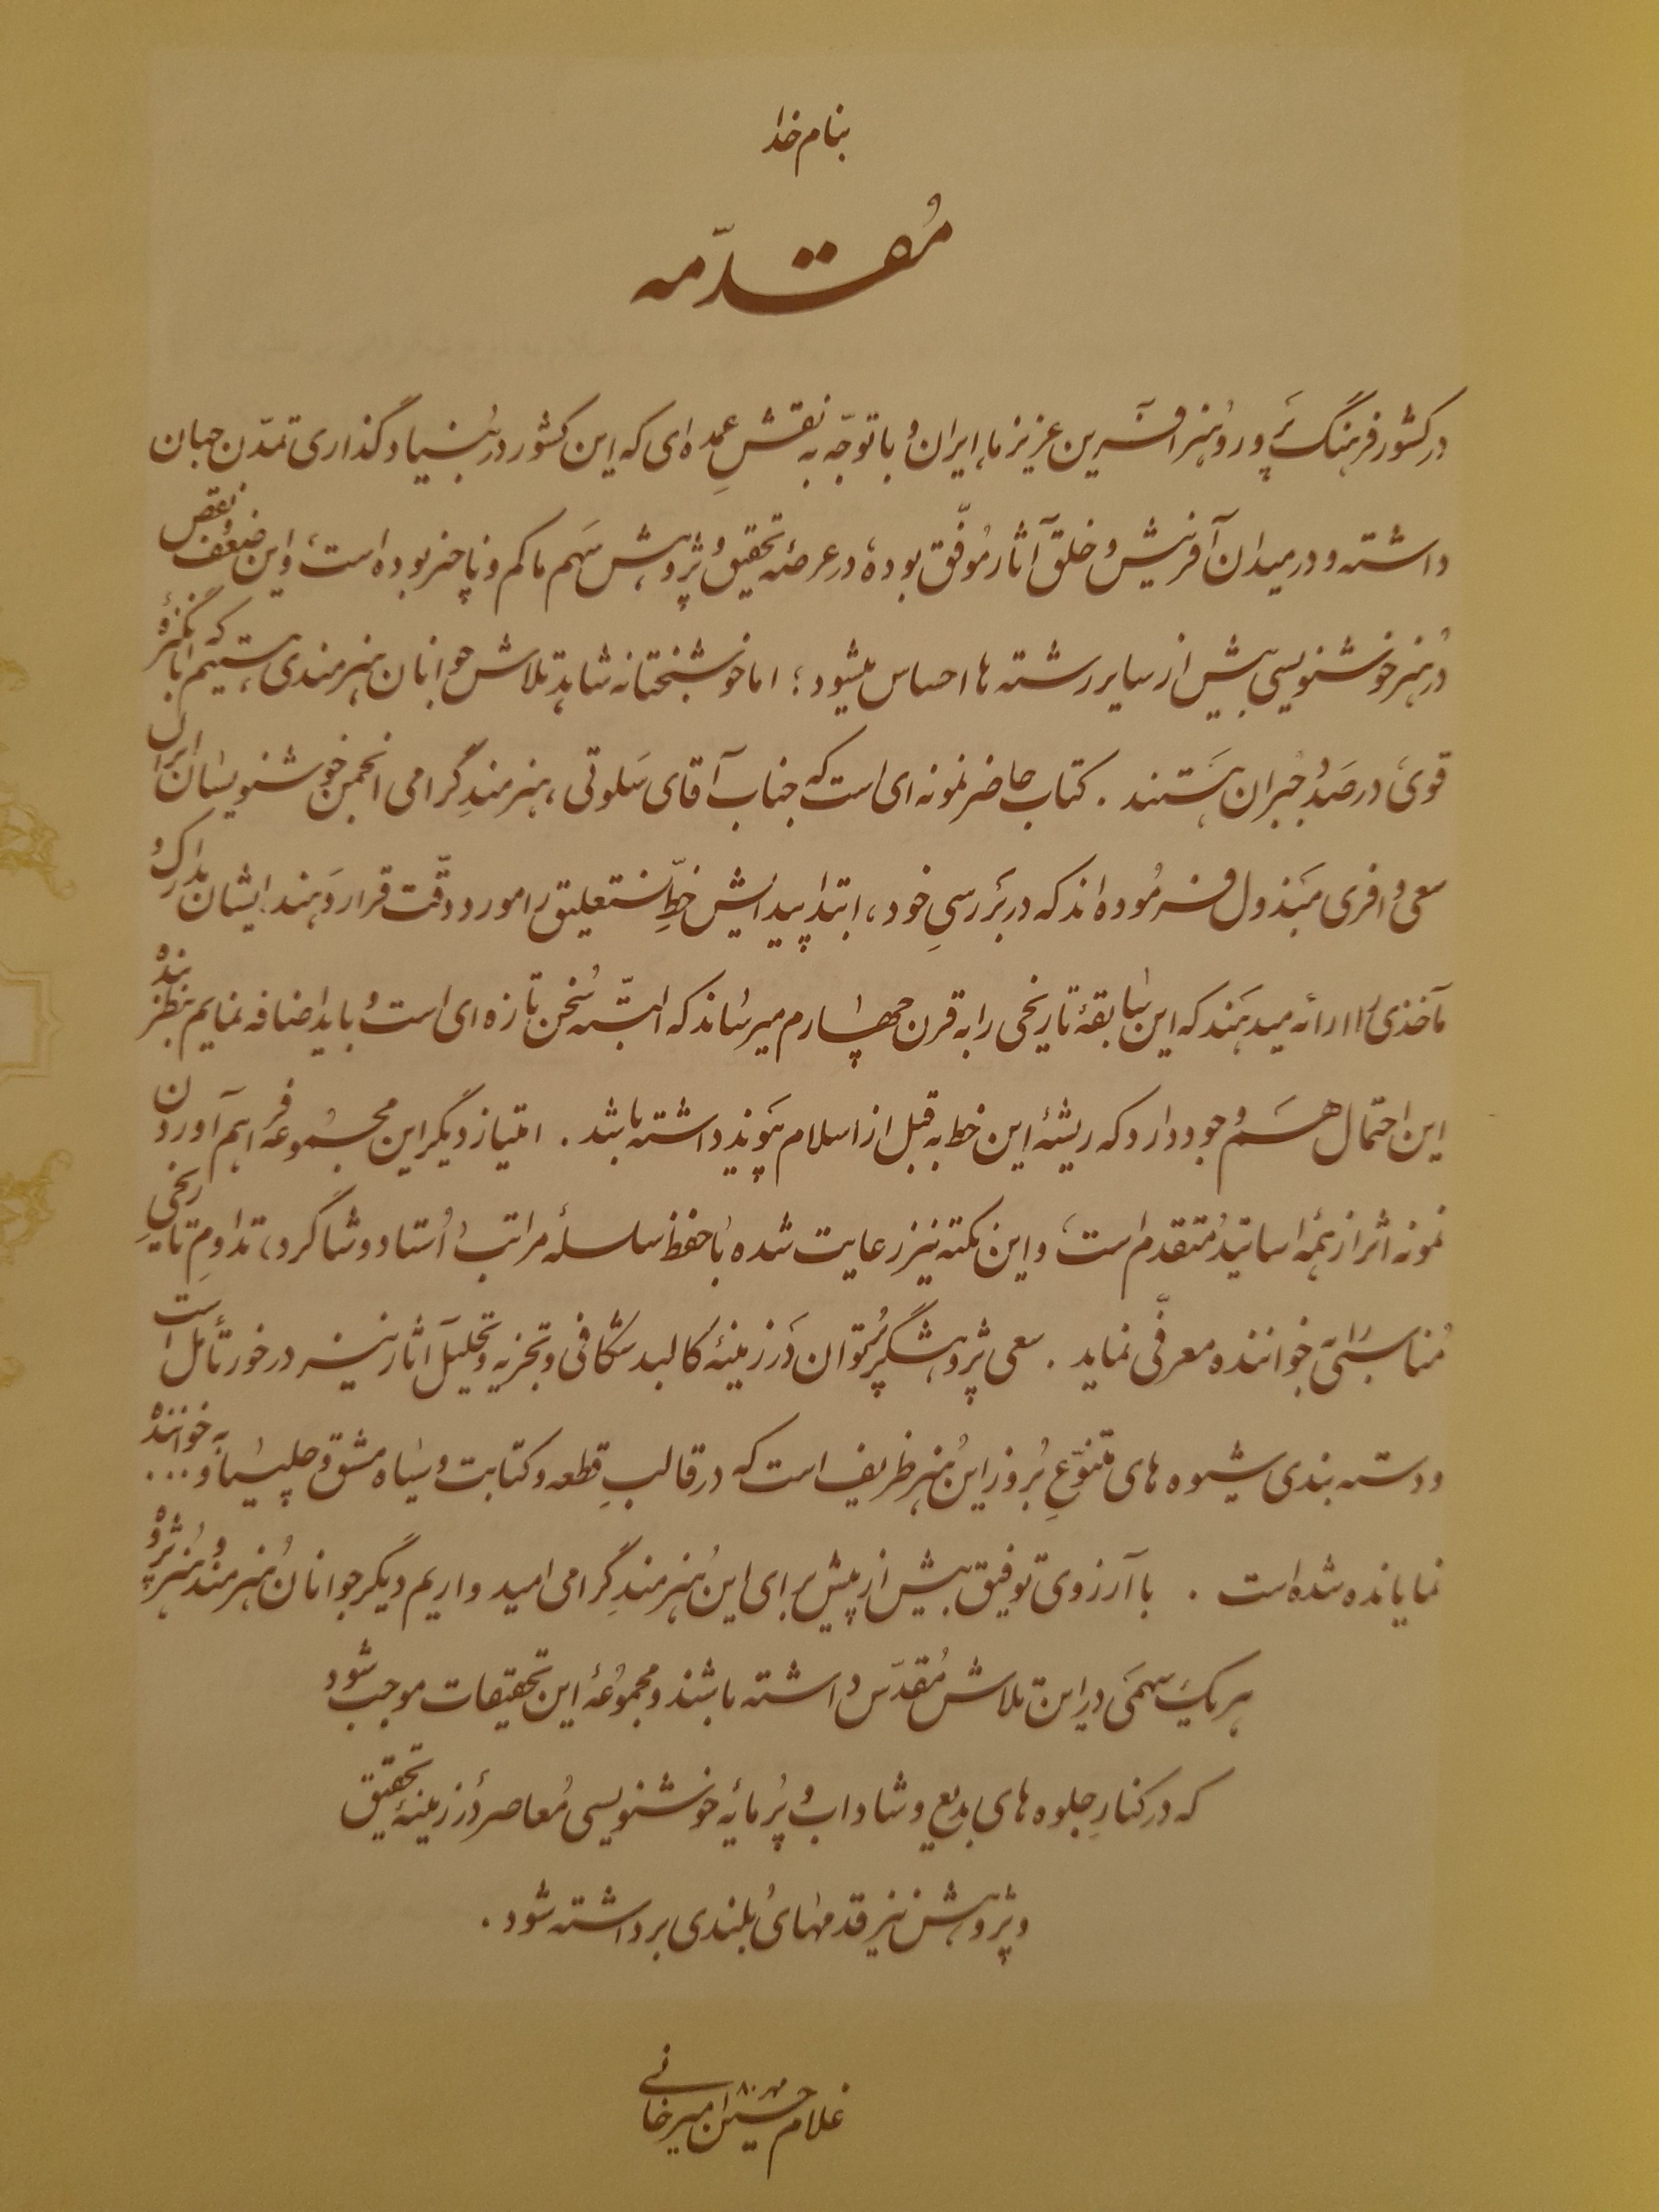 بنام خدا
مُقدّمه
در کشور فرهنگ‌پرور و هنرآفرین عزیز ما، ایران و با توجّه به نقشِ عمده‌ای که این کشور در بنیادگذاری تمدّن جهان
داشته و در میدان آفرینش و خلق آثار مُوفّق بوده، در عرصهٔ تحقیق و پژوهش سَهم ما کم و ناچیز بوده است، و این ضعف و نقص
در هنر خوشنویسی بیش از سایر رشته‌ها احساس میشود؛ اما خوشبختانه شاهد تلاش جوانان هنرمندی هستیم که با انگیزهٔ
قوی، درصدد جبران هستند. کتاب حاضر نمونه‌ای است که جناب آقای سَلوتی، هنرمندِ گرامی انجمن خوشنویسان ایران
سعی وافری مبذول فرموده‌اند که در بررسیِ خود، ابتدا پیدایش خطِّ نستعلیق را مورد دقّت قرار دهند. ایشان مدارک و
مآخذی را ارائه میدهند که این سابقهٔ تاریخی را به قرن چهارم میرساند که البتّه سُخن تازه‌ای است و باید اضافه نمایم بنظر بنده
این احتمال هم وجود دارد که ریشهٔ این خط به قبل از اسلام پیوند داشته باشد. امتیاز دیگر این مجموعه فراهم آوردن
نمونه اثر از همهٔ اساتید مُتقدم است، و این نکته نیز رعایت شده با حفظ سلسله مراتب اُستاد و شاگرد، تداومِ تاریخیِ
مُناسبی به خواننده معرفّی نماید. سعی پژوهشگر پُرتوان در زمینهٔ کالبدشکافی و تجزیه و تحلیل آثار نیز در خور تأمل است
و دسته بندی شیوه‌های متنوّعِ بُروز این هنر ظریف است که در قالبِ قطعه و کتابت و سیاه مشق و چلیپا و... به خواننده
نمایانده شده است. با آرزوی توفیق بیش از پیش برای این هنرمندِ گرامی امیدواریم دیگر جوانان هنرمند و هنرپژوه
هر یک سهمی در این تلاش مُقدّس داشته باشند و مجموعهٔ این تحقیقات موجب شود
که در کنارِ جلوه‌های بدیع و شاداب و پُرمایهٔ خوشنویسی مُعاصر در زمینهٔ تحقیق
و پژوهش نیز قدمهای بلندی برداشته شود.
غلامحسین امیرخانی
مهر ۸۰